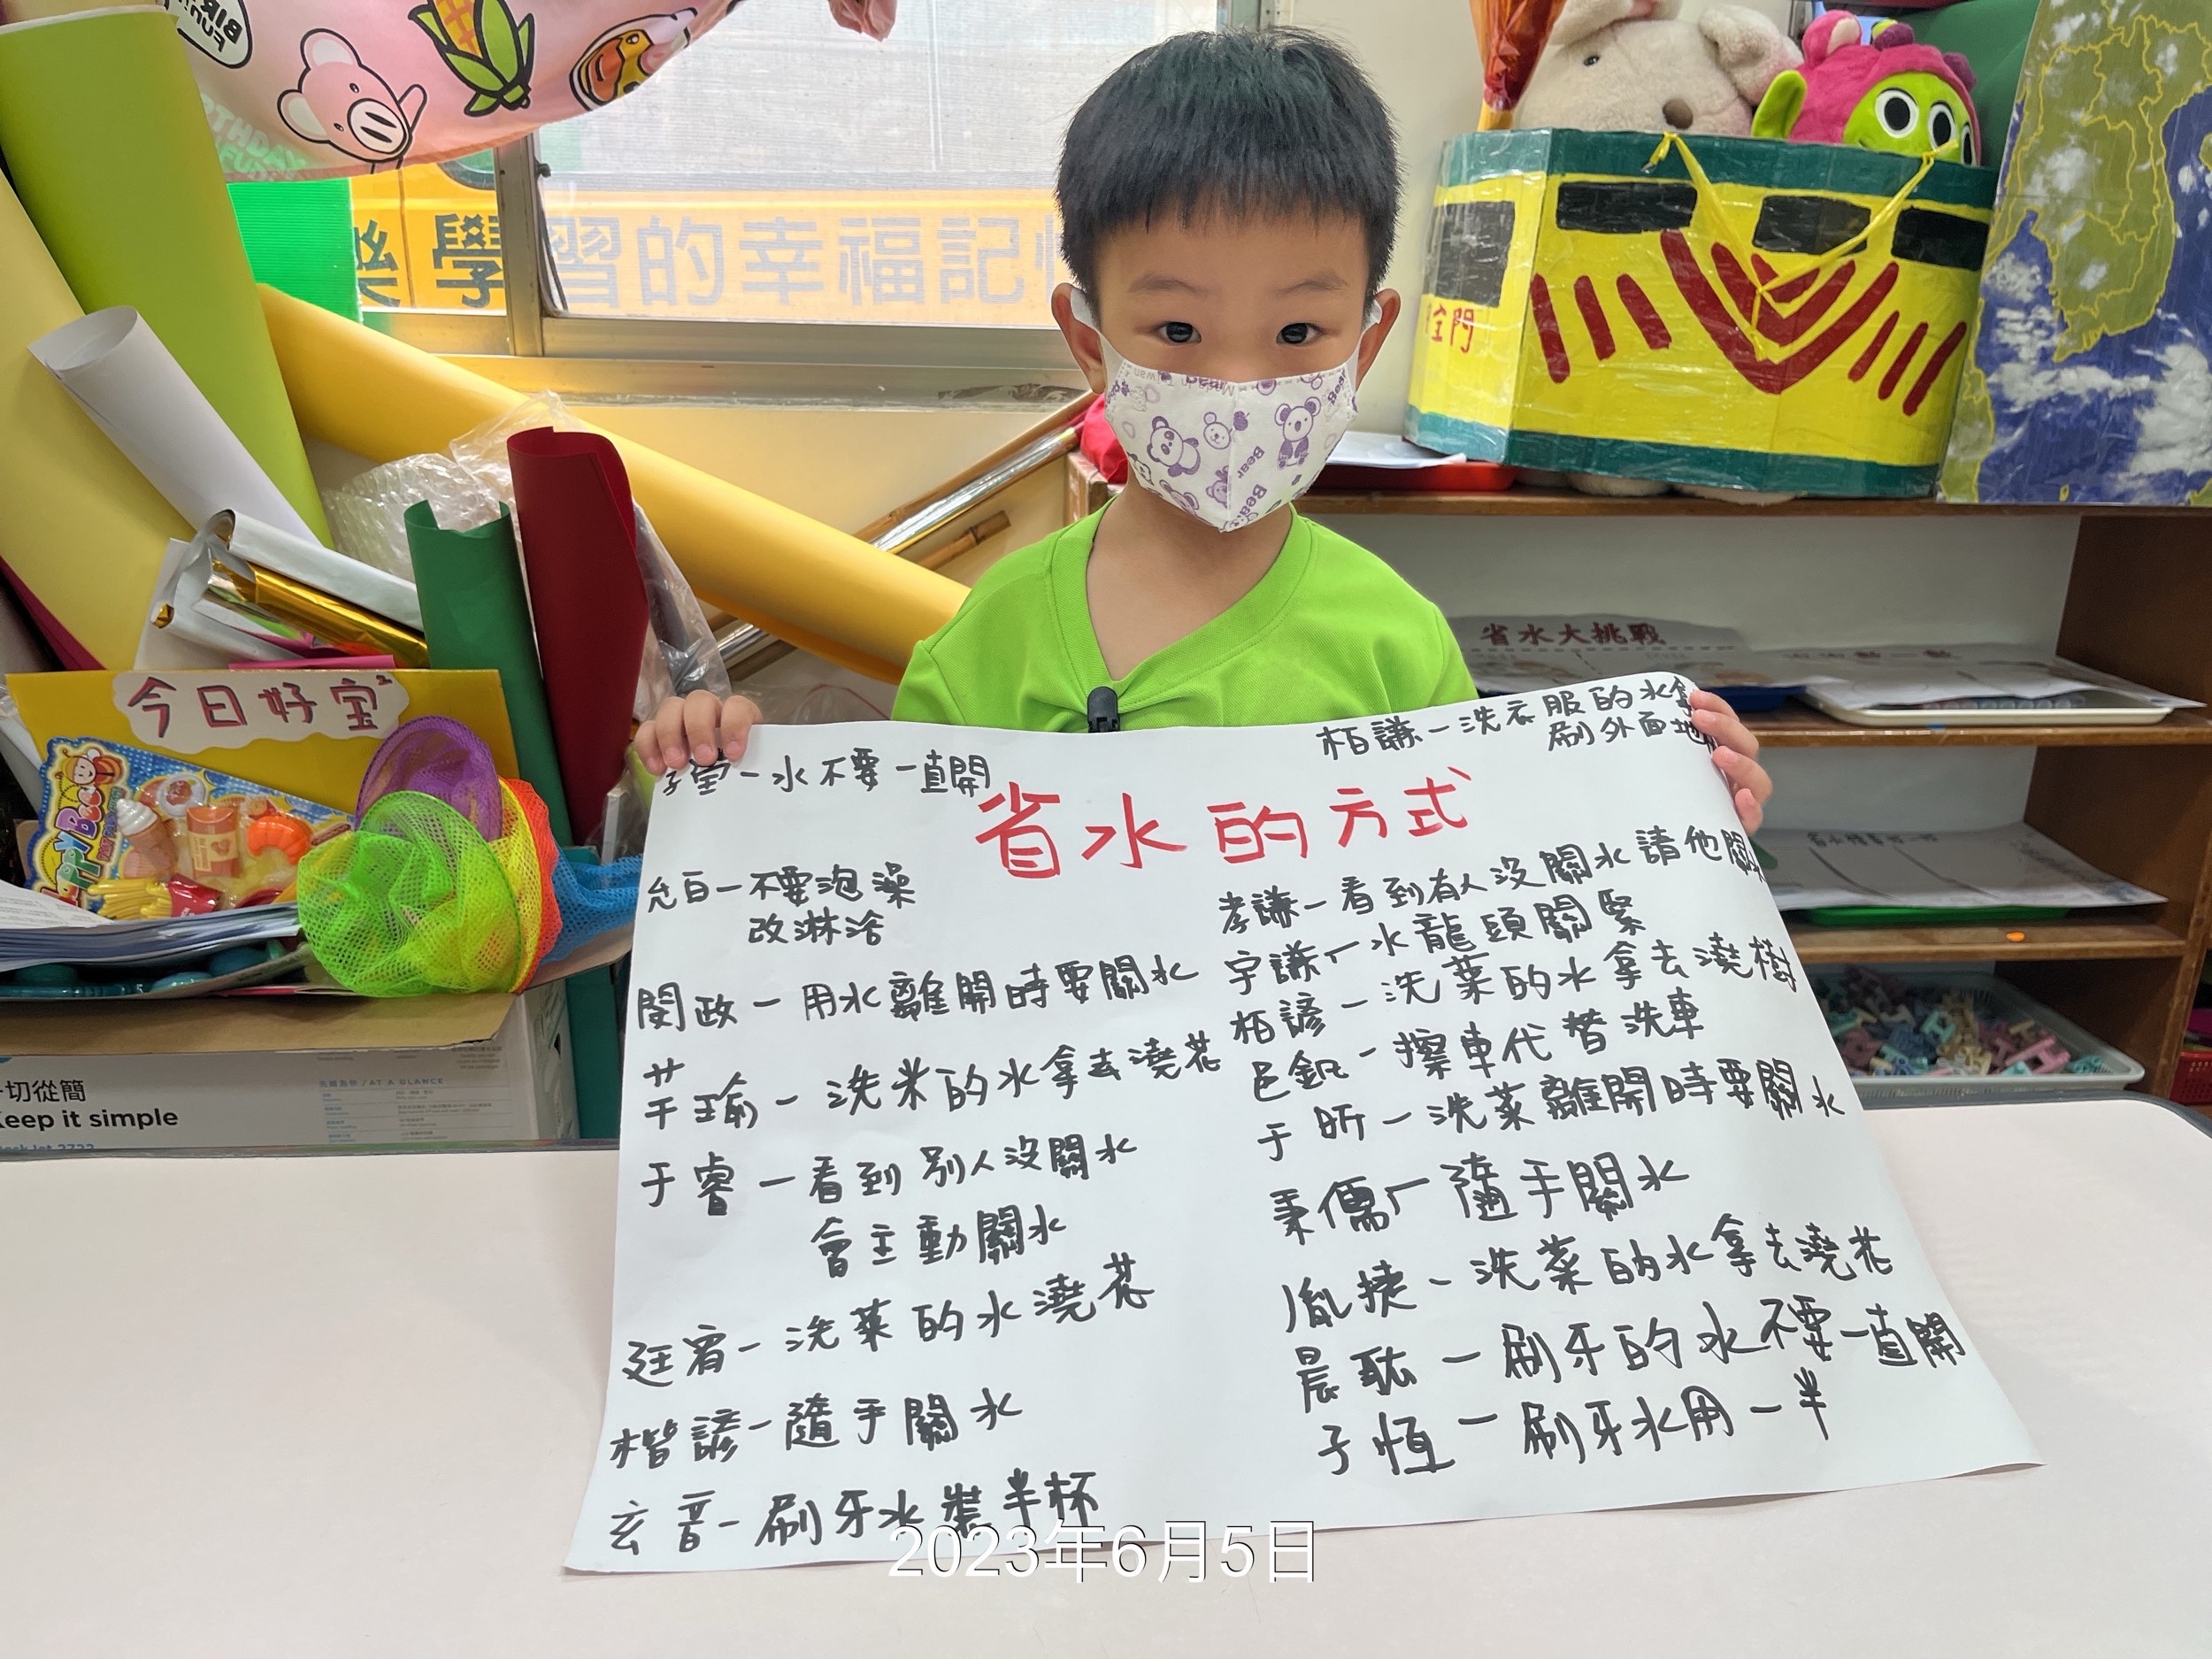 FUNNY
BIRTHDAY
FUN
樂學習的幸福記憶
金門
Bear
Bear
Bear
省水大挑戰
今日好宝
Happy Bee
一切從簡
Keep it simple
AT A GLANCE
DeskJet 2722
子堂-水不要一直開
栢謙-洗衣服的水拿
刷外面地
省水的方式
允白-不要泡澡
改淋浴
閔政-用水離開時要關水
芊瑜-洗米的水拿去澆花
于睿-看到別人沒關水
會主動關水
廷宥-洗菜的水澆花
楷諺-隨手關水
玄音-刷牙水裝半杯
孝謙-看到有人沒關水請他關
宇謙-水龍頭關緊
栢諺-洗菜的水拿去澆樹
邑釩-擦車代替洗車
于昕-洗菜離開時要關水
秉儒-隨手關水
胤捷-洗菜的水拿去澆花
晨耘-刷牙的水不要一直開
子恆-刷牙水用一半
2023年6月5日